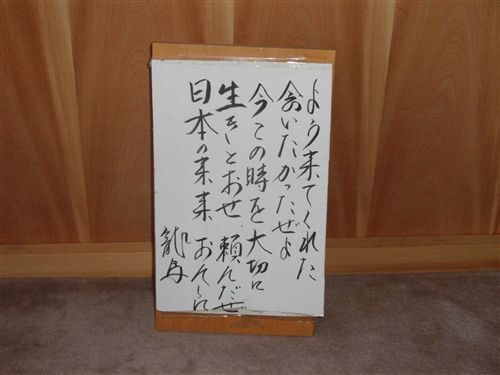 よう来てくれた
会いたかったぜよ
今この時を大切に
生きとおせ、頼んだぜ
日本の未来 おんしに
龍馬